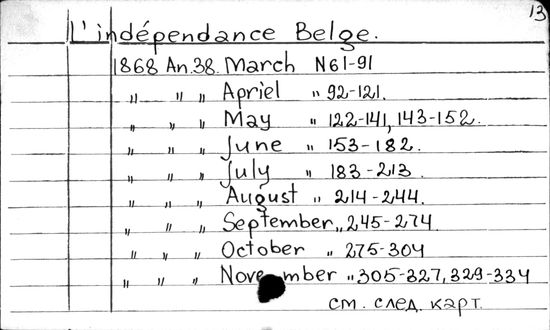 13
L'indépendance Belge.
1868 An.38. March N 61-91
" " " Apriel " 92-121.
" " " May " 122-141, 143-152.
" " " June " 153-182.
" " " July " 183-213.
" " " August " 214-244.
" " " September " 245-274
" " " October " 275-304
" " " November " 305-327, 329-334
см. след. карт.